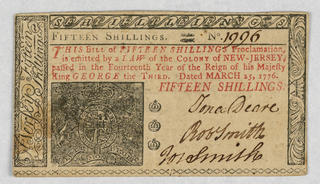 FIFTEEN SHILLINGS. No. 1996
THIS Bill of FIFTEEN SHILLINGS Proclamation,
is emitted by a LAW of the COLONY of NEW-JERSEY,
passed in the Fourteenth Year of the Reign of his Majesty
King GEORGE the THIRD. Dated MARCH 25, 1776.
FIFTEEN SHILLINGS.
Jona Deare
Rob Smith
Jos Smith